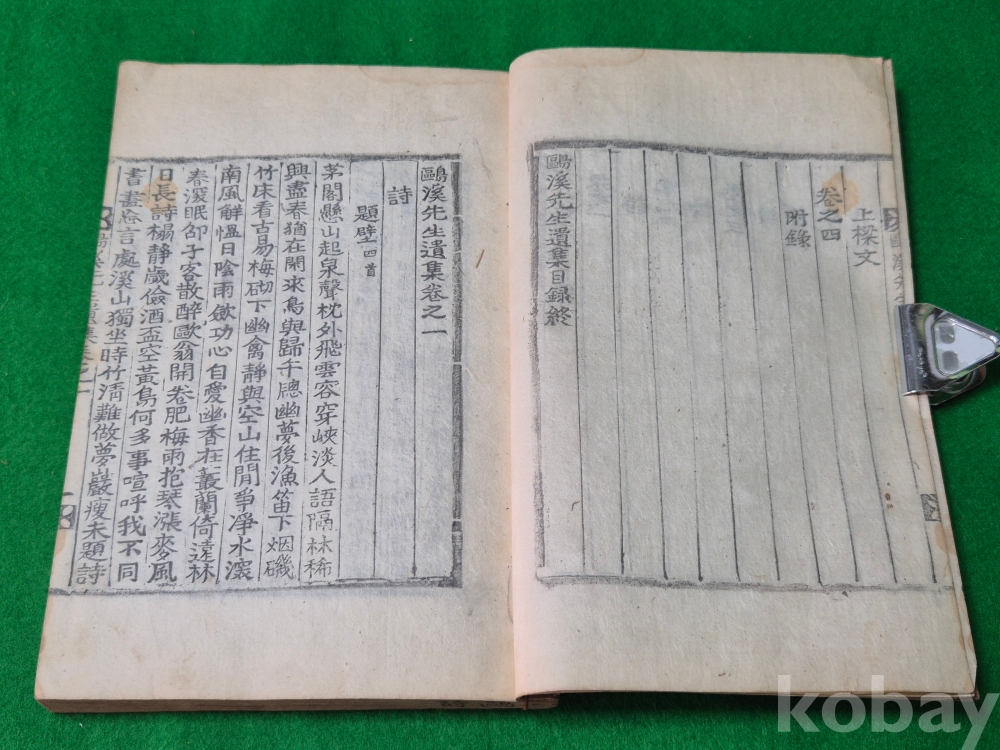 上樑文
卷之四
附錄
鷗溪先生遺集目録終
鷗溪先生遺集卷之一
詩
題壁四首
茅閣懸山起泉聲枕外飛雲容穿峽淡人語隔林稀
興盡春猶在閒來鳥與歸午牕幽夢後漁笛下烟磯
竹床看古易梅砌下幽禽靜與空山住閒爭凈水深
南風解慍日陰雨歛功心自愛幽香在叢蘭倚遠林
春濃眠卲子客散醉歐翁開卷肥梅雨抱琴漲麥風
日長詩榻靜歲儉酒盃空黃鳥何多事喧呼我不同
書畫忘言處溪山獨坐時竹淸難做夢巖瘦未題詩
kobay